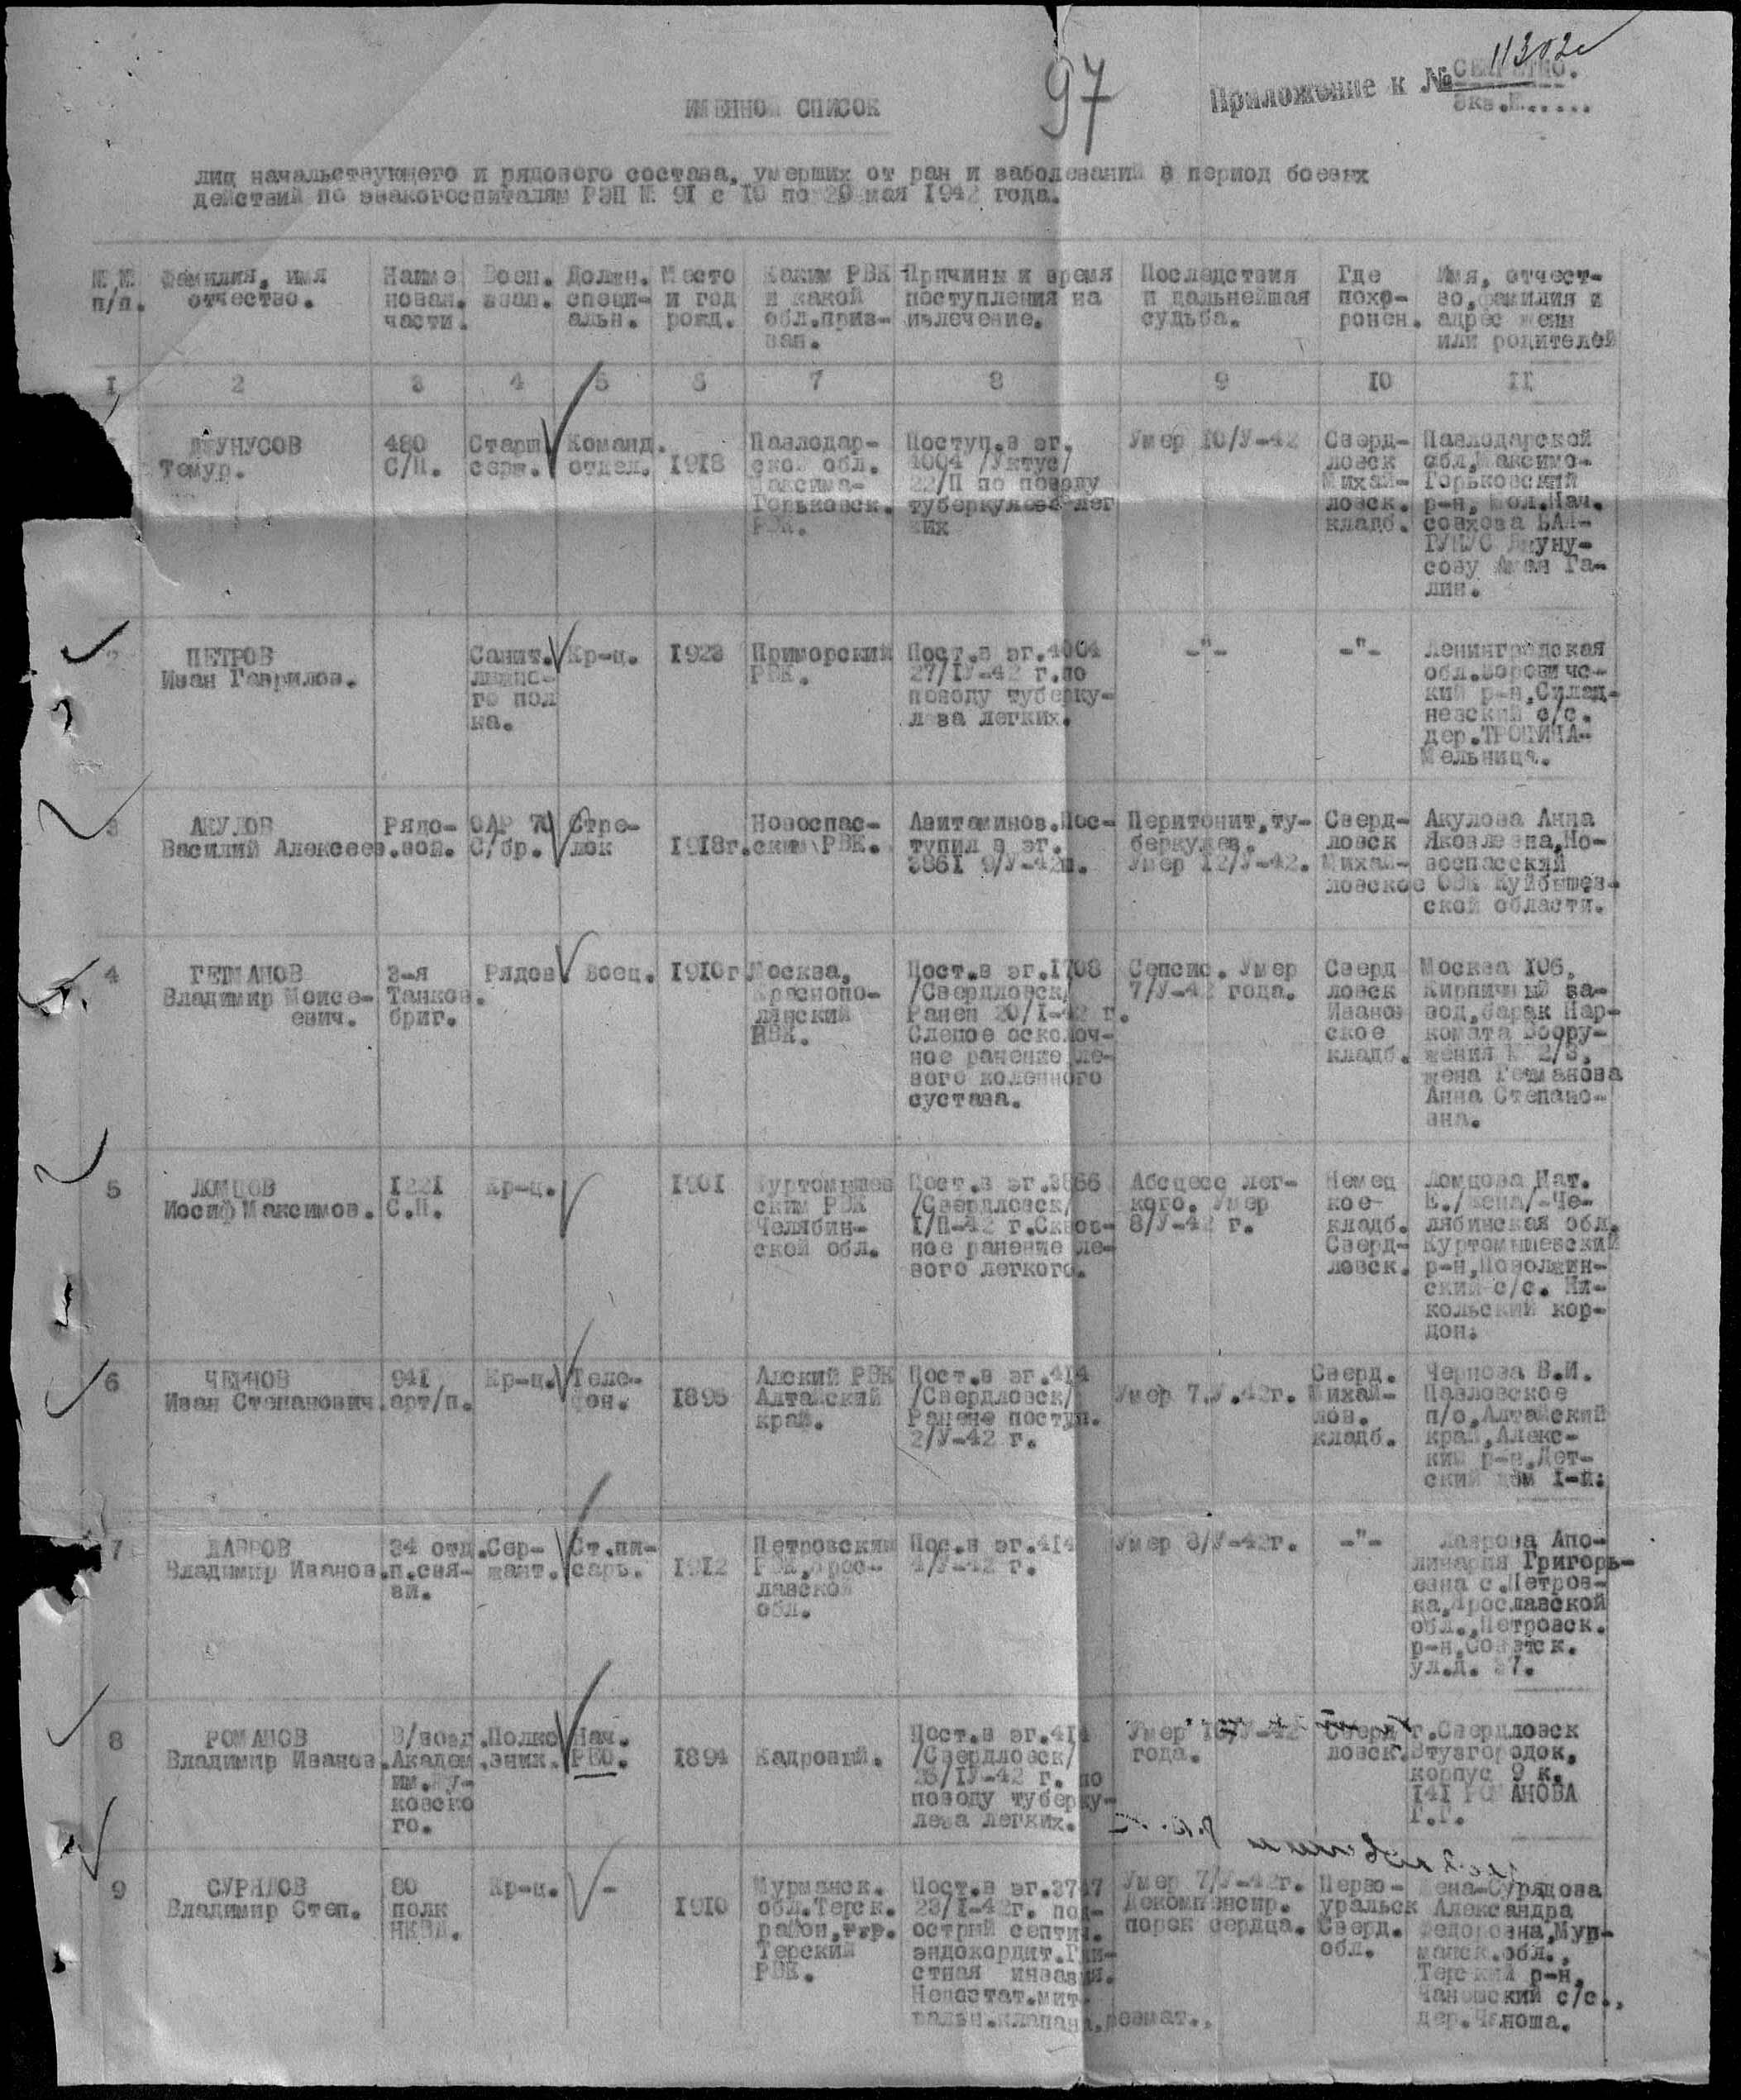 97
Приложение к № 11302с
СЕКРЕТНО.
Экз.№.....
ИМЕННОЙ СПИСОК
лиц начальствующего и рядового состава, умерших от ран и заболеваний в период боевых
действий по эвакогоспиталям РЭП № 91 с 10 по 20 мая 1942 года.
№ № п/п.
Фамилия, имя отчество.
Наиме нован. части.
Воен. зван.
Должн. специ- альн.
Место и год рожд.
Каким РВК и какой обл.приз- ван.
Причины и время поступления на излечение.
Последствия и дальнейшая судьба.
Где похо- ронен.
Имя, отчест- во,фамилия и адрес жены или родителей
1 2 3 4 5 6 7 8 9 10 11
ДЖУНУСОВ
Темур.
480
С/П.
Старш.
серж.
Команд.
отдел.
1918
Павлодар-
ской обл.
Максима-
Горьковск.
РВК.
Поступ.в эг.
4004 /Уктус/
22/П по поводу
туберкулеза лег
ких
Умер 10/У-42
Сверд-
ловск
Михай-
ловск.
кладб.
Павлодарской
обл,Максимо-
Горьковский
р-н,
совхоза
Джуну-
сову Га-
лин.
2
ПЕТРОВ
Иван Гаврилов.
Санит.
лыжно-
го пол
ка.
Кр-ц.
1923
Приморский
РВК.
Пост.в эг.4004
27/IУ-42 г.по
поводу туберку-
леза легких.
-"-
-"-
Ленинградская
обл.Боровичс-
кий р-н,
невский с/с.
дер.
Мельница.
3
АКУЛОВ
Василий Алексеев.
Рядо-
вой.
ОАР 70
С/бр.
Стре-
лок
1918г.
Новоспас-
ским РВК.
Авитаминоз.Пос-
тупил в эг.
3861 9/У-42г.
Перитонит,ту-
беркулез.
Умер 12/У-42.
Сверд-
ловск
Михай-
ловское
Акулова Анна
Яковлевна,Но-
воспасский
Куйбышев-
ской области.
4
ГЕТМАНОВ
Владимир Моисе-
евич.
3-я
Танков.
бриг.
Рядов
Боец.
1910г
Москва,
Краснопо-
лянский
РВК.
Пост.в эг.1708
/Свердловск/
Ранен 20/I-42 г.
Слепое осколоч-
ное ранение ле-
вого коленного
сустава.
Сепсис. Умер
7/У-42 года.
Сверд
ловск
Иванов
ское
кладб.
Москва 106,
Кирпичный за-
вод,барак Нар-
комата Воору-
жения № 2/3,
жена Гетманова
Анна Степано-
вна.
5
ЛОМЦОВ
Иосиф Максимов.
1221
С.П.
Кр-ц.
1901
Куртамышев
ским РВК
Челябин-
ской обл.
Пост.в эг.3866
/Свердловск/
1/П-42 г.Сквоз-
ное ранение ле-
вого легкого.
Абсцесс лег-
кого. Умер
8/У-42 г.
Немец
кое
кладб.
Сверд-
ловск.
Ломцова Нат.
Е./жена/-Че-
лябинская обл.
Куртомышевский
р-н,
ский с/с. Ни-
кольский кор-
дон.
6
ЧЕРНОВ
Иван Степанович.
941
арт/п.
Кр-ц.
Теле-
фон.
1895
РВК
Алтайский
край.
Пост.в эг.414
/Свердловск/
Ранене поступ.
2/У-42 г.
Умер 7.У.42г.
Сверд.
Михай-
лов.
кладб.
Чернова В.И.
Павловское
п/о,Алтайский
край,Алекс-
ким р-н,Дет-
ский дом 1-й.
7
ЛАВРОВ
Владимир Иванов.
34 отд.
п.свя-
зи.
Сер-
жант.
Ст.пи-
сарь.
1912
Петровским
РВК,Ярос-
лавской
обл.
Пос.в эг.414
4/У-42 г.
Умер 8/У-42г.
-"-
Лаврова Апо-
линария Григорь-
евна с.Петров-
ка,Ярославской
обл.,Петровск.
р-н,Советск.
ул.д. 27.
8
РОМАНОВ
Владимир Иванов.
В/возд.
Академ.
им.Жу-
ковско
го.
Полко
вник.
Нач.
РВО.
1894
Кадровый.
Пост.в эг.414
/Свердловск/
23/IУ-42 г. по
поводу туберку-
леза легких.
Умер 10/У-42
года.
Сверд
ловск.
г.Свердловск
Втузгородок,
корпус 9 к.
141 РОМАНОВА
Г.Г.
9
СУРЯДОВ
Владимир Степ.
80
полк
НКВД.
Кр-ц.
-
1910
Мурманск.
обл.Терск.
район,
Терский
РВК.
Пост.в эг.3747
23/I-42г. под-
острий септич.
эндокордит.Гли-
стная инвазия.
Недостат.мит-
ральн.клапана,ревмат.,
Умер 7/У-42г.
Декомпенсир.
порок сердца.
Перво-
уральск
Сверд.
обл.
Жена-Сурядова
Александра
Федоровна,Мур-
манск.обл.,
Терский р-н,
с/с.,